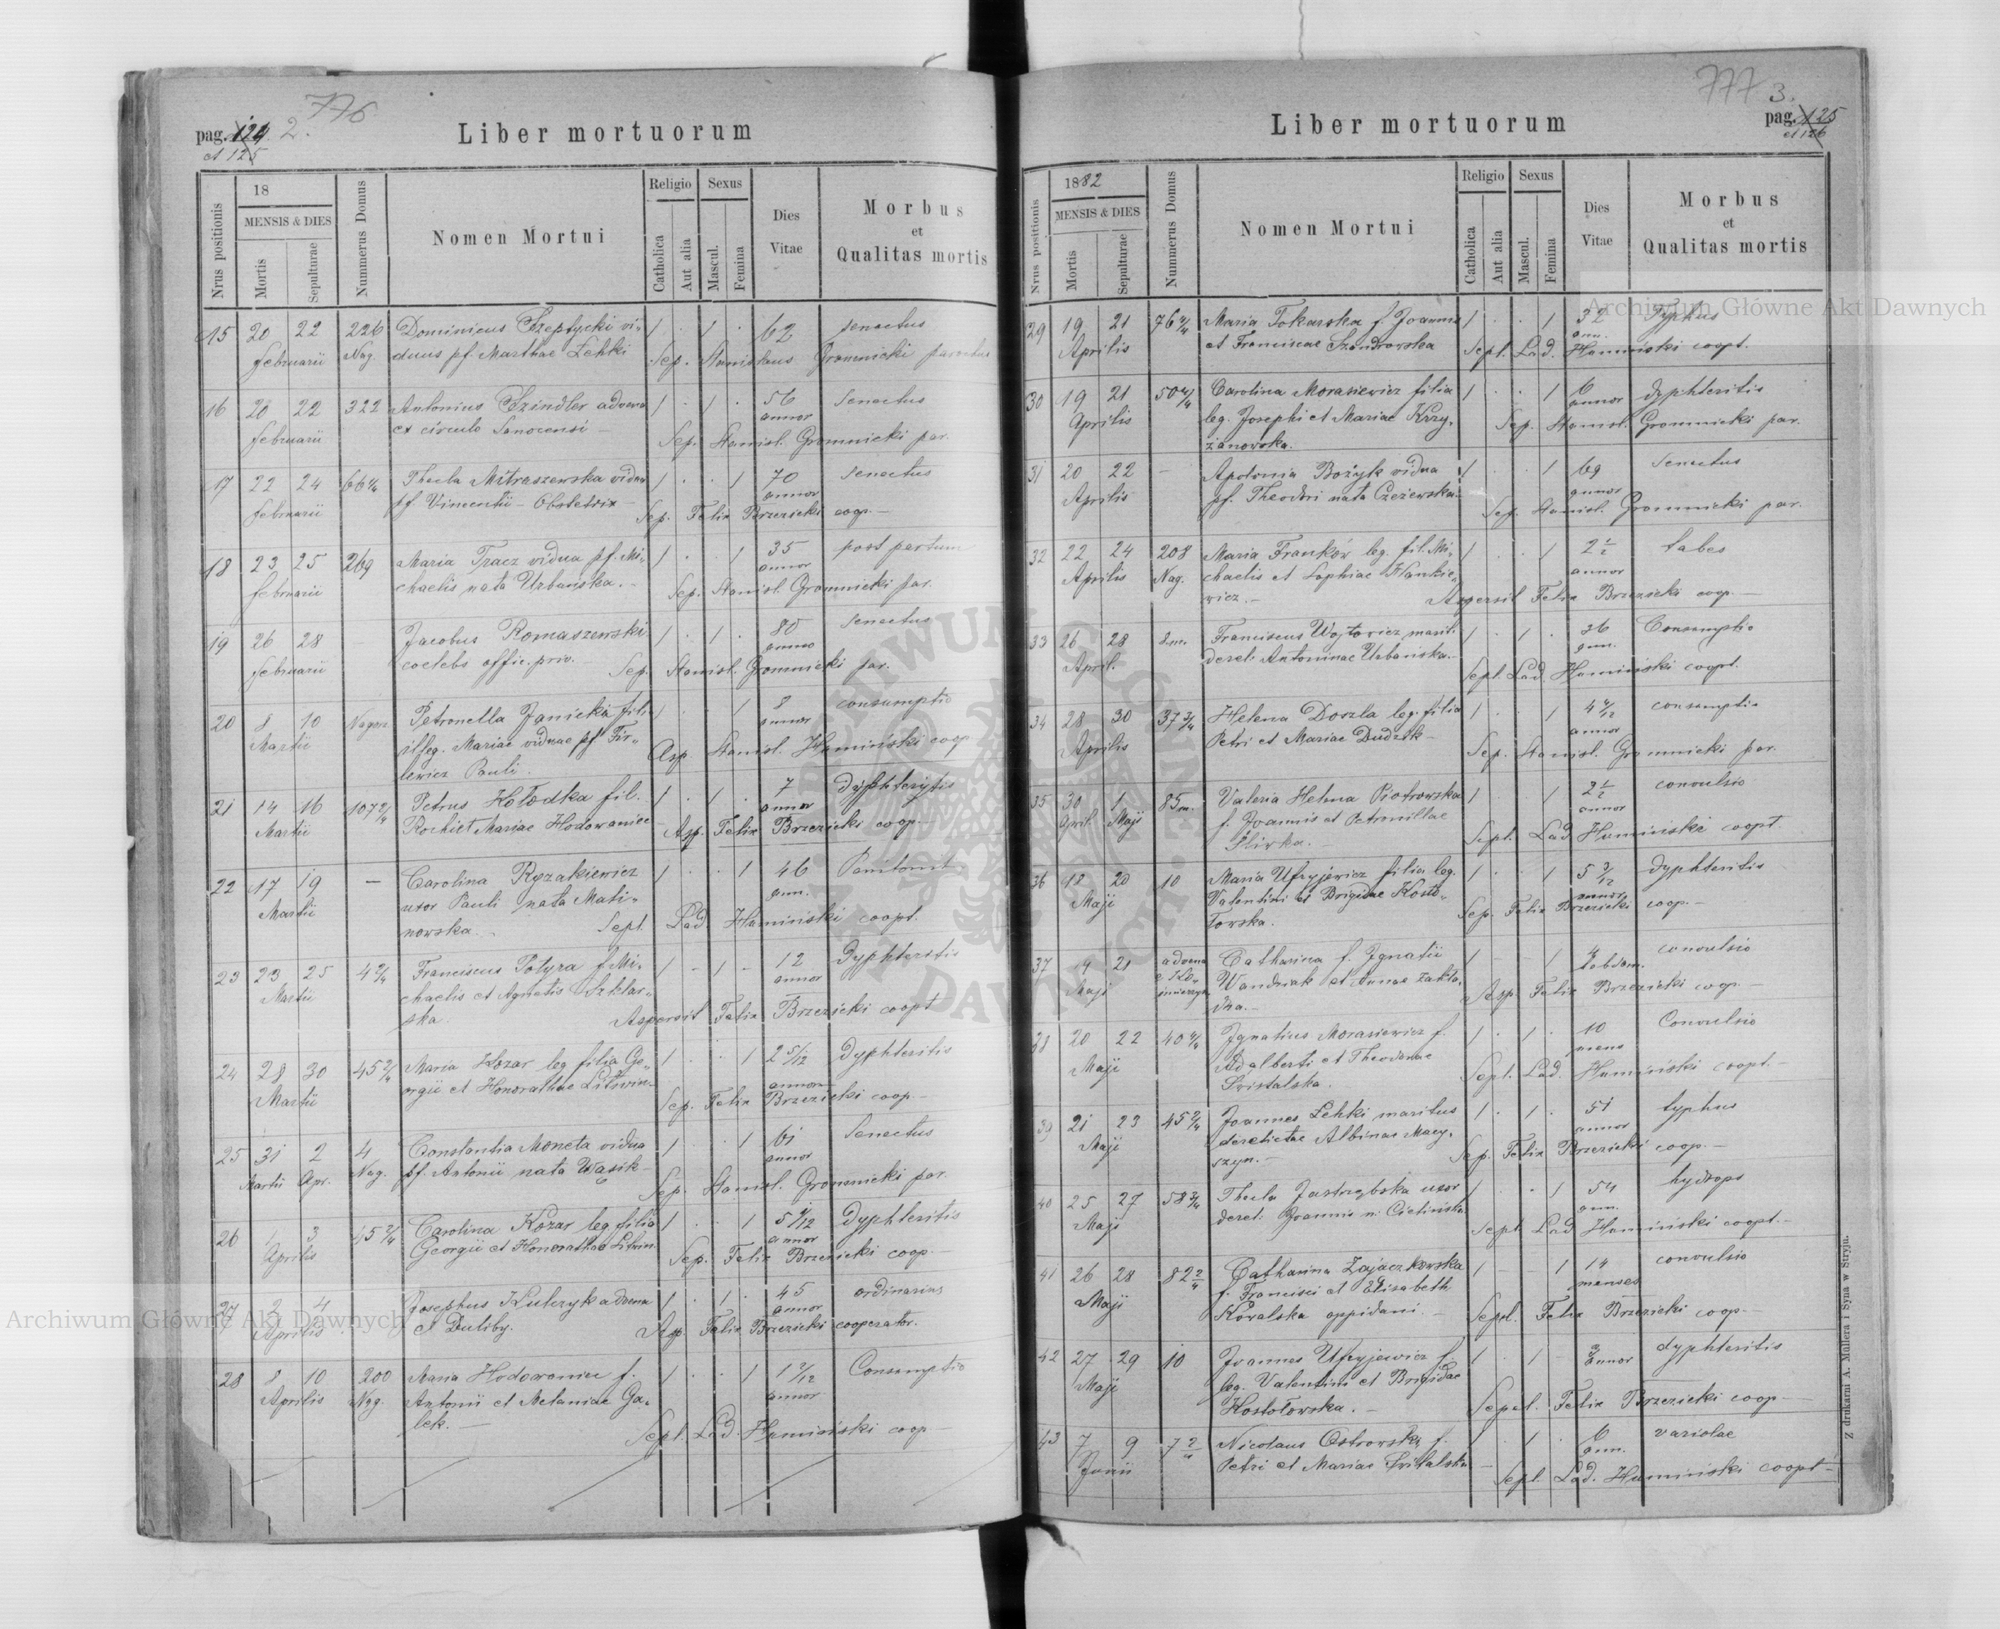 776
pag. 124. 2.
et 125
Liber mortuorum
Nrus positionis
18
MENSIS & DIES
Mortis
Sepulturae
Nummerus Domus
Nomen Mortui
Religio
Catholica
Aut alia
Sexus
Mascul.
Femina
Dies
Vitae
Morbus
et
Qualitas mortis
15 20 22 226 Dominicus Szeptycki vi- 1 . 1 . 62 senectus
Februarii Nag. duus pf. Marthae Lehki Sep. Stanislaus Gromnicki parochus
16 20 22 322 Antonius Szindler advena 1 . 1 . 56 Senectus
Februarii ex circulo Sanocensi — annor Sep. Stanisl. Gromnicki par.
17 22 24 66 Thecla Mitraszewska vidua 1 . . 1 70 senectus
Februarii pf. Vincentii — Obstetrix — annor Sep. Felix Brzezicki coop. —
18 23 25 269 Maria Tracz vidua pf. Mi- 1 . . 1 35 post partum
Februarii chaelis nata Urbańska. — annor Sep. Stanisl. Gromnicki par.
19 26 28 Jacobus Romaszewski 1 . 1 . 80 Senectus
Februarii coelebs offic. priv. — annor Sep. Stanisl. Gromnicki par.
20 8 10 Petronella Janicka fili 1 . . 1 8 consumptio
Martii illeg. Mariae viduae pf. Fir- annor Asp Stanisl. Humiński coop
lewicz Pauli.
21 14 16 107 2/4 Petrus Kołodka fil. 1 . 1 . 7 Dyphterytis
Martii Rochi et Mariae Hodowaniec annor Asp. Felix Brzezicki coop. —
22 17 19 — Carolina Ryzakiewicz 1 . . 1 46
Martii uxor Pauli nata Mati- ann.
nowska. — Sept. Lad Humiński coopt.
23 23 25 4 Franciscus Potyra f. Mi- 1 - 1 - 12 Dyphteritis
Martii chaelis et Agnetis Szklar- annor
ska. Aspersit Felix Brzezicki coopt
24 28 30 45 2/4 Maria Kozar leg. filia Ge- 1 . . 1 2 5/12 Dyphteritis
Martii orgii et Honorathae Litwin. annor Sep. Felix Brzezicki coop. —
25 31 2 4 Constantia Moneta vidua 1 . . 1 61 Senectus
Martii Apr. Nag. pf. Antonii nata Wąsik — annor Sep. Stanisl. Gromnicki par.
26 1 3 45 2/4 Carolina Kozar leg. filia 1 . . 1 5 Dyphteritis
Aprilis Georgii et Honorathae Litwin annor Sep. Felix Brzezicki coop. —
27 2 4 Josephus Kulczyk advena 1 . 1 . 45 ordinarius
Aprilis et Duliby. annor Asp Felix Brzezicki cooperator.
28 8 10 200 Maria Hodowaniec f. 1 . . 1 1 2/12 Consumptio
Aprilis Nag. Antonii et Melaniae Ga- annor
lek. — Sept. Lad. Humiński coop —
777 3.
pag. 125
et 126
Liber mortuorum
Nrus positionis
1882
MENSIS & DIES
Mortis
Sepulturae
Nummerus Domus
Nomen Mortui
Religio
Catholica
Aut alia
Sexus
Mascul.
Femina
Dies
Vitae
Morbus
et
Qualitas mortis
29 19 21 76 Maria Tokarska f. Joannis 1 . . 1 32 Typhus
Aprilis et Franciscae Szandrowska ann. Sept. Lad. Humiński coopt.
30 19 21 50 Carolina Morasiewicz filia 1 . . 1 6 dyphteritis
Aprilis leg. Josephi et Mariae Krzy- annor Sep. Stanisl. Gromnicki par.
żanowska.
31 20 22 — Apolonia Bożyk vidua 1 . . 1 69 Senectus
Aprilis pf. Theodori nata Czeżewska. annor Sep. Stanisl. Gromnicki par.
32 22 24 208 Maria Franków leg. fil. Mi- 1 . . 1 2 1/2 tabes
Aprilis Nag. chaelis et Sophiae Hankie- annor
wicz. — Aspersit Felix Brzezicki coop. —
33 26 28 2.m. Franciscus Wojtowicz marit. 1 . 1 . 36 Consumptio
April. derel. Antoninae Urbańska. ann. Sept. Lad Humiński coopt.
34 28 30 37 3/4 Helena Doszla leg. filia 1 . . 1 4 4/12 consumptio
Aprilis Petri et Mariae Dudzik — annor Sep. Stanisl. Gromnicki par.
35 30 1 85m. Valeria Helena Piotrowska 1 . . 1 2 1/2 convulsio
April. Maji f. Joannis et Petronillae annor Sept. Lad Humiński coopt.
Śliwka.
36 18 20 10 Maria Ufryjewicz filia leg. 1 . . 1 5 3/12 dyphteritis
Maji Valentini et Brigidae Kosto- annor Sep. Felix Brzezicki coop. —
łowska.
37 19 21 advena Catharina f. Ignatii 1 - - 1 4 convulsio
Maji Wandziak et Annae hebdom. Asp. Felix Brzezicki coop. —
38 20 22 40 Ignatius Morasiewicz f. 1 . 1 . 10 Convulsio
Maji Adalberti et Theodorae mens Sept. Lad. Humiński coopt. —
Świstalska.
39 21 23 45 2/4 Joannes Lehki maritus 1 . 1 . 51 typhus
Maji derelictae Albinae Macy- annor
szyn. — Sep. Felix Brzezicki coop. —
40 25 27 58 3/4 Thecla Jastrzębska uxor 1 . . 1 54 hydrops
Maji derel. Joannis n. Cielińska ann. Sept Lad Humiński coopt. —
41 26 28 82 2/4 Catharina Zajączkowska 1 - - 1 14 convulsio
Maji f. Francisci et Elisabeth menses
Kowalska oppidani. — Sepel. Felix Brzezicki coop. —
42 27 29 10 Joannes Ufryjewicz f. 1 . 1 - 3 dyphteritis
Maji leg. Valentini et Brigidae annor
Kostołowska. — Sepel. Felix Brzezicki coop —
43 7 9 7 2/4 Nicolaus Ostrowski f. 1 . 1 . 6 variolae
Junii Petri et Mariae Świtalska ann. Sept. Lad. Humiński coopt —
Z drukarni A. Müllera i Syna w Stryju.
Archiwum Główne Akt Dawnych
Archiwum Główne Akt Dawnych
ARCHIWUM GŁÓWNE AKT DAWNYCH